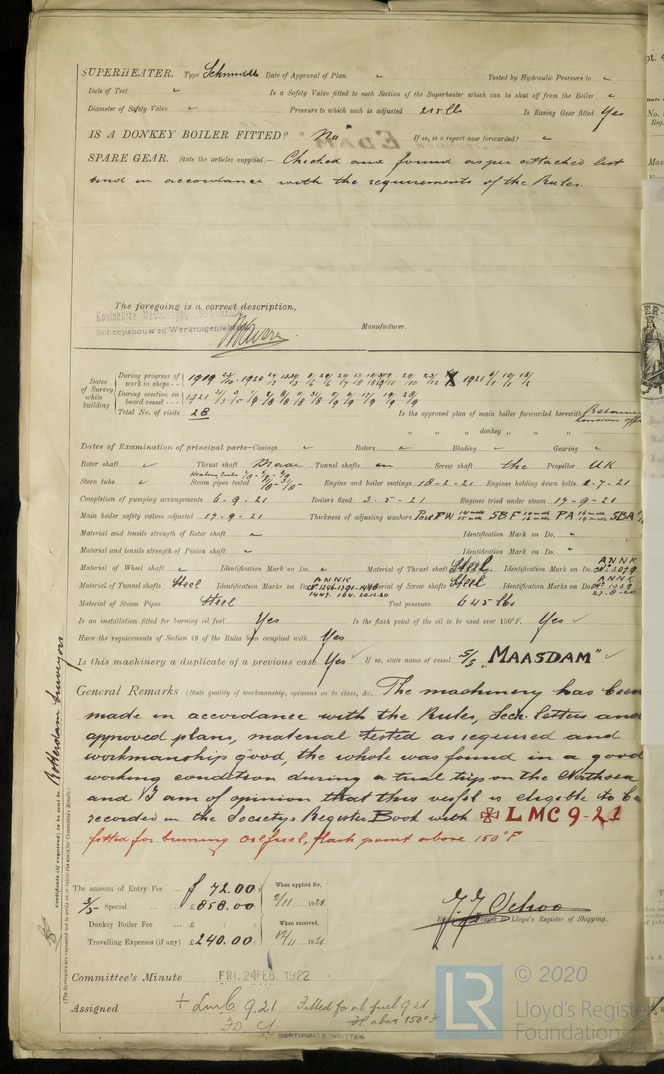 SUPERHEATER. Type Schmidt Date of Approval of Plan Tested by Hydraulic Pressure to
Date of Test Is a Safety Valve fitted to each Section of the Superheater which can be shut off from the Boiler
Diameter of Safety Valve Pressure to which each is adjusted 215 lb Is Easing Gear fitted Yes
IS A DONKEY BOILER FITTED? No If so, is a report now forwarded?
SPARE GEAR. State the articles supplied:— Checked and found as per attached list
and in accordance with the requirements of the Rules.
The foregoing is a correct description,
Koninklijke Maatschappij
Scheepsbouw en Werktuigenfabriek
Manufacturer.
Dates of Survey while building
During progress of work in shops - - 1919 1920 1921
During erection on board vessel - - - 1921
Total No. of visits 28 Is the approved plan of main boiler forwarded herewith
" " donkey " " "
Dates of Examination of principal parts—Casings Rotors Blading Gearing
Rotor shaft Thrust shaft Tunnel shafts Screw shaft the Propeller UK
Stern tube Steam pipes tested Engine and boiler seatings 18-2-21 Engines holding down bolts 2-7-21
Completion of pumping arrangements 6-9-21 Boilers fixed 3-5-21 Engines tried under steam 17-9-21
Main boiler safety valves adjusted 17-9-21 Thickness of adjusting washers
Material and tensile strength of Rotor shaft Identification Mark on Do.
Material and tensile strength of Pinion shaft Identification Mark on Do.
Material of Wheel shaft Identification Mark on Do. Material of Thrust shaft Steel Identification Mark on Do. ANNK
Material of Tunnel shafts Steel Identification Marks on Do. ANNK Material of Screw shafts Steel Identification Marks on Do. ANNK
Material of Steam Pipes Steel Test pressure 645 lbs
Is an installation fitted for burning oil fuel Yes Is the flash point of the oil to be used over 150°F. Yes
Have the requirements of Section 49 of the Rules been complied with Yes
Is this machinery a duplicate of a previous case Yes If so, state name of vessel S/S "MAASDAM"
General Remarks (State quality of workmanship, opinions as to class, &c. The machinery has been
made in accordance with the Rules, Secr. letters and
approved plans, material tested as required and
workmanship good, the whole was found in a good
working condition during a trial trip on the Northsea
and I am of opinion that this vessel is eligible to be
recorded in the Societys Register Book with LMC 9-21
fitted for burning oil fuel, flash point above 150°F
The amount of Entry Fee ... ƒ 72.00 When applied for,
3/5 Special ... £ 858.00 2/11 1921
Donkey Boiler Fee ... £ When received,
Travelling Expenses (if any) £ 240.00 12/11 1921
Engineer Surveyor to Lloyd's Register of Shipping.
Committee's Minute FRI. 24 FEB. 1922
Assigned + LMC 9.21 Fitted for oil fuel 9.21
FD CL FP above 150°F
CERTIFICATE WRITTEN.
Certificate (if required) to be sent to Rotterdam Surveyors
(The Surveyors are requested not to write on or below the space for Committee's Minute.)
LR
© 2020
Lloyd's Register
Foundation